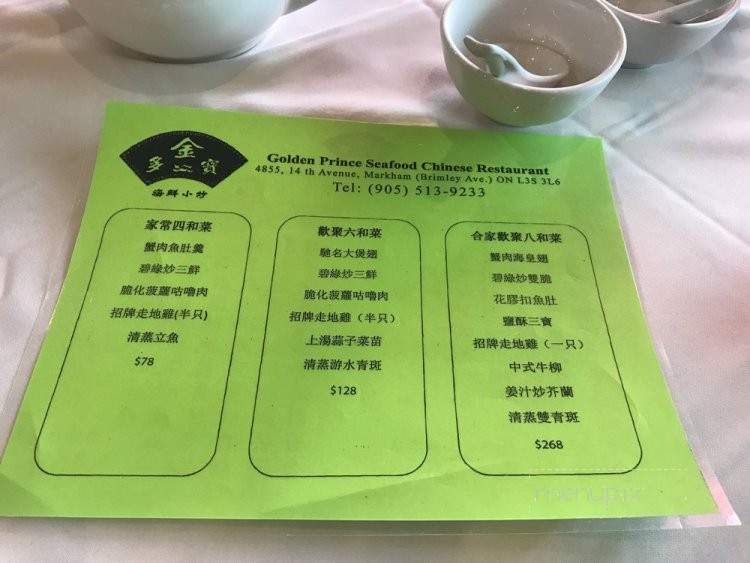 金
多公寶
海鮮小炒
Golden Prince Seafood Chinese Restaurant
4855, 14 th Avenue, Markham (Brimley Ave.) ON L3S 3L6
Tel: (905) 513-9233
家常四和菜
蟹肉魚肚羹
碧綠炒三鮮
脆化菠蘿咕嚕肉
招牌走地雞(半只)
清蒸立魚
$78
歡聚六和菜
馳名大煲翅
碧綠炒三鮮
脆化菠蘿咕嚕肉
招牌走地雞（半只）
上湯蒜子菜苗
清蒸游水青斑
$128
合家歡聚八和菜
蟹肉海皇翅
碧綠炒雙脆
花膠扣魚肚
鹽酥三寶
招牌走地雞（一只）
中式牛柳
姜汁炒芥蘭
清蒸雙青斑
$268
menupix